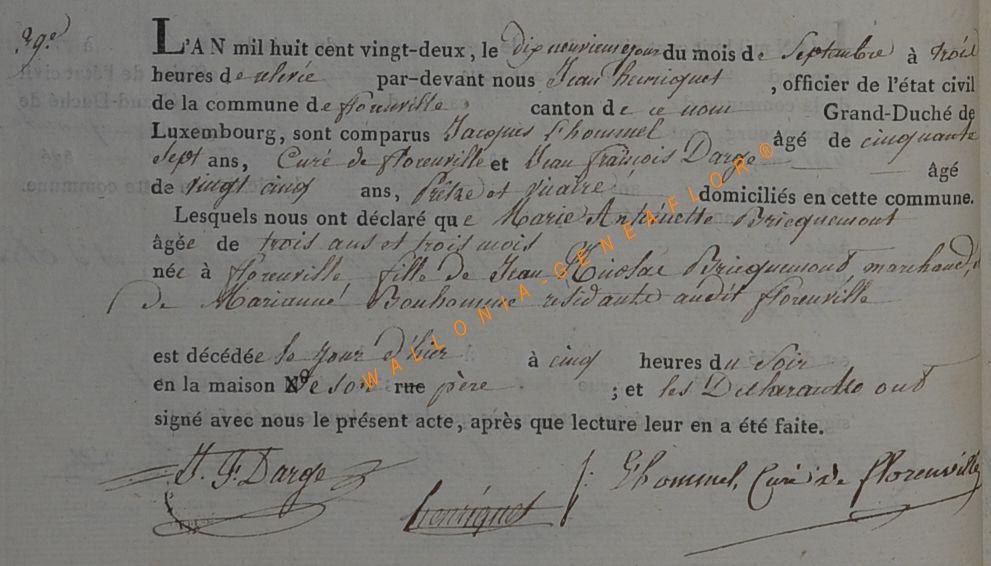 29.e
L'AN mil huit cent vingt-deux, le dix neuvieme jour du mois de Septembre à trois
heures de relevée par-devant nous Jean henricquet, officier de l'état civil
de la commune de florenville canton de ce nom Grand-Duché de
Luxembourg, sont comparus Jacques L'hommel âgé de cinquante
sept ans, Curé de florenville et Jean françois Darge âgé
de vingt cinq ans, Prêtre et vicaire domiciliés en cette commune.
Lesquels nous ont déclaré que Marie Antoinette Bricquemont
âgée de trois ans et trois mois
née à florenville, fille de Jean Nicolas Bricquemont, marchand, &
de Marianne Bonhomme résidante audit florenville
est décédée le jour d'hier à cinq heures du Soir
en la maison N° de son rue père ; et les Déclarants ont
signé avec nous le présent acte, après que lecture leur en a été faite.
J. F. Darge henriquet J: L'hommel, Curé de florenville
WALLONIA-GENEAFLOR®